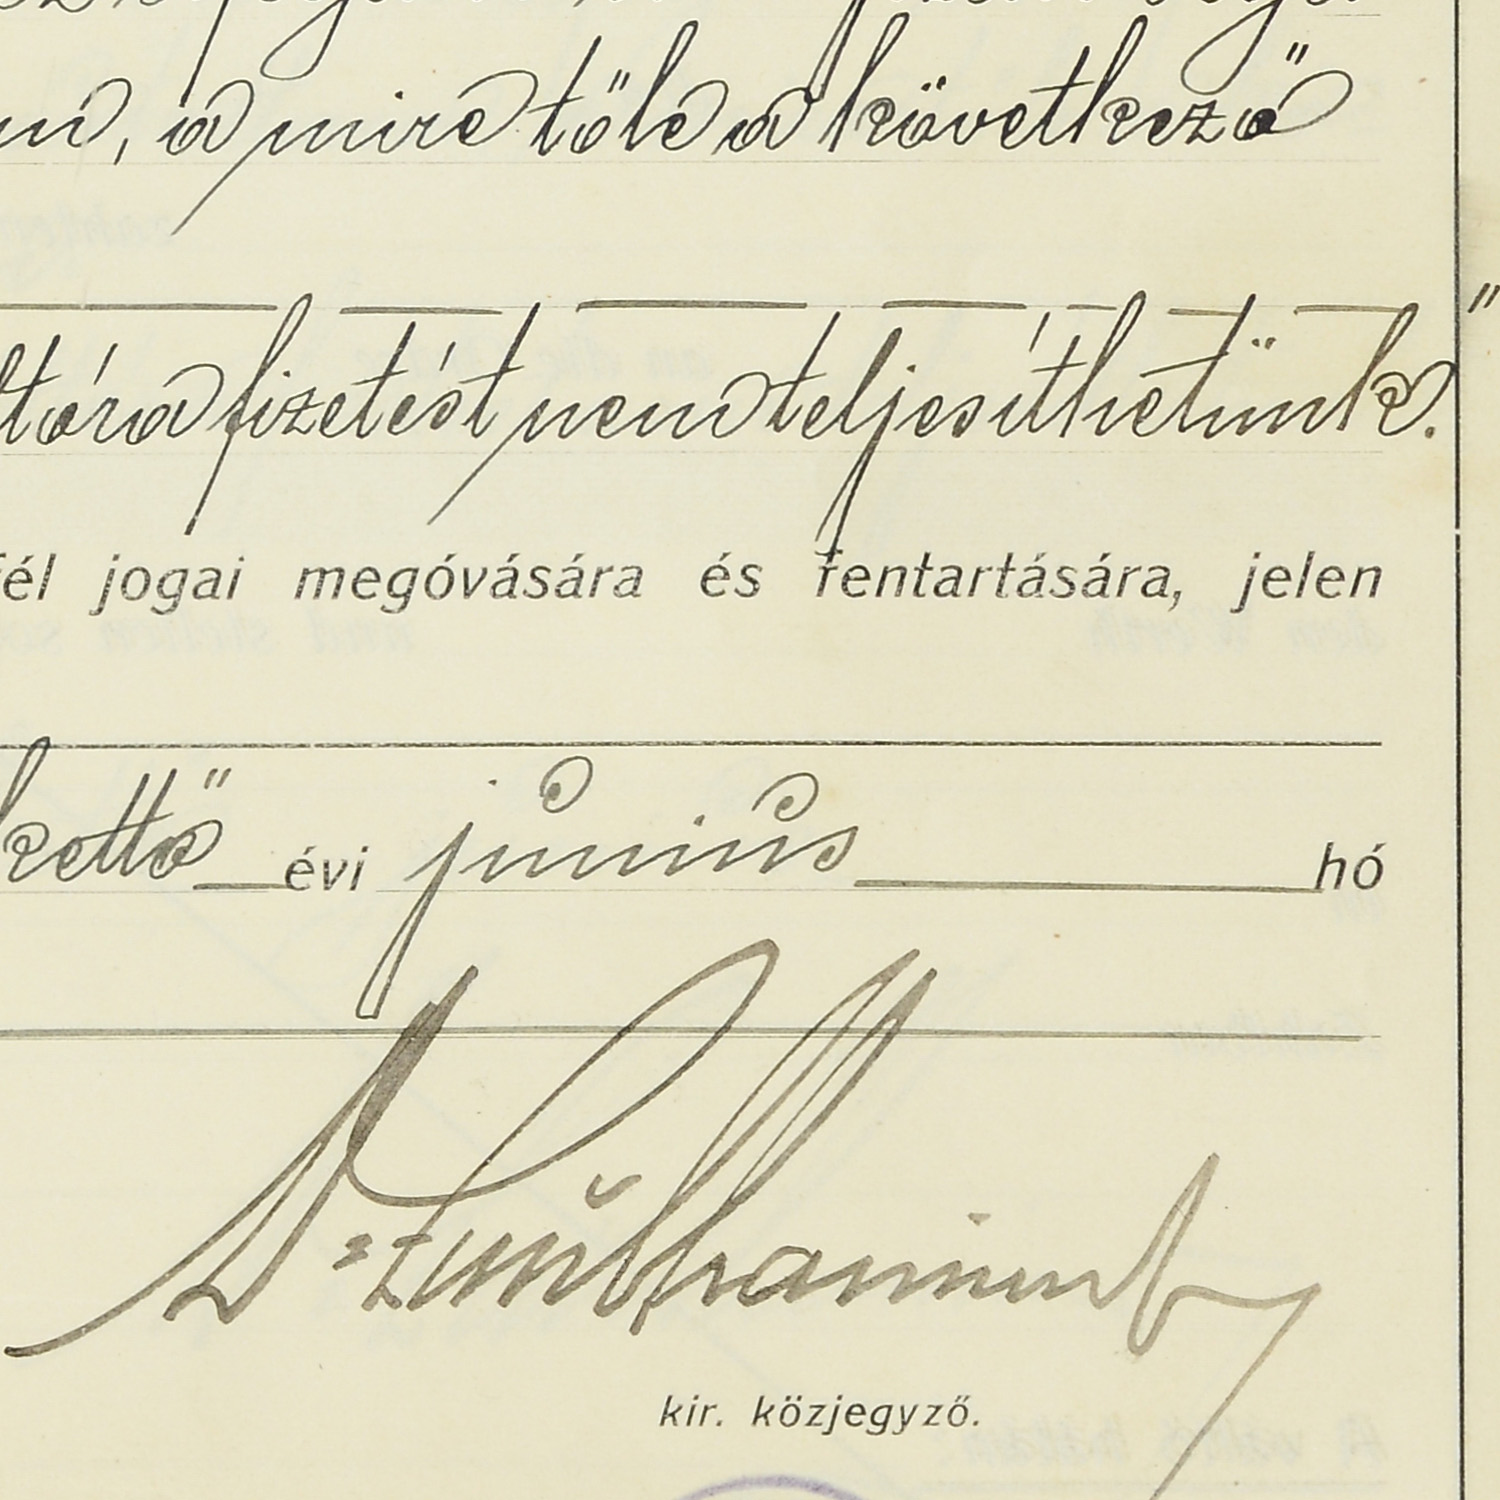 a mire tőle a következő
"
fizetést nem teljesíthetünk.
fél jogai megóvására és fentartására, jelen
kettő évi június hó
Dr.
kir. közjegyző.